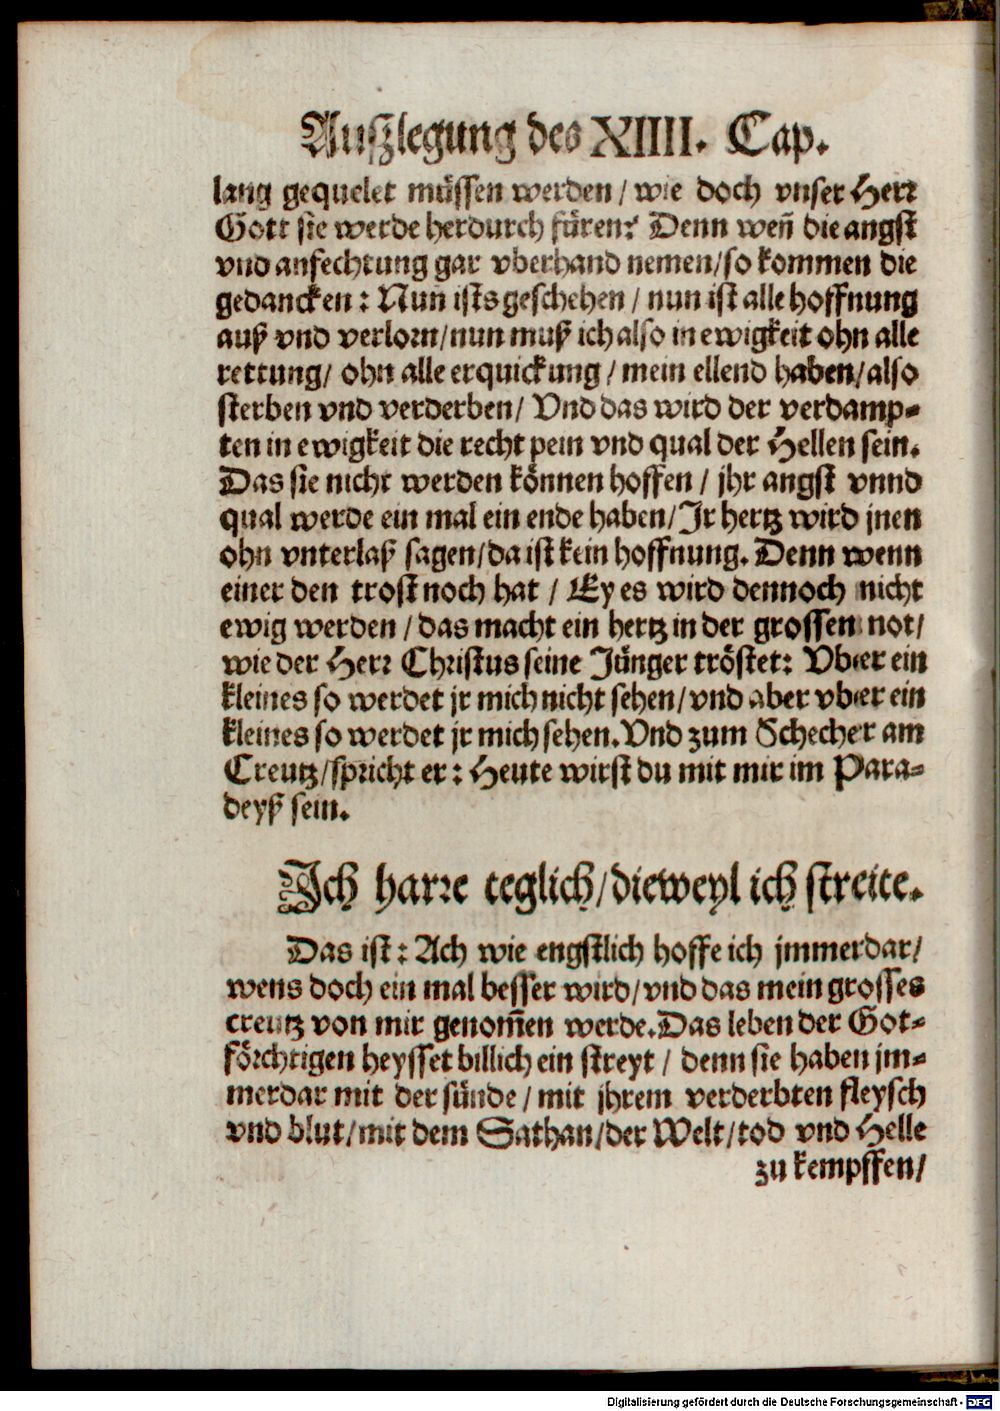 Außlegung des XIIII. Cap.
lang gequelet müssen werden / wie doch vnser Herr
Gott sie werde herdurch füren? Denn weñ die angst
vnd anfechtung gar vberhand nemen/so kommen die
gedancken : Nun ists geschehen / nun ist alle hoffnung
auß vnd verlorn/nun muß ich also in ewigkeit ohn alle
rettung/ ohn alle erquickung / mein ellend haben/also
sterben vnd verderben/ Vnd das wird der verdamp-
ten in ewigkeit die recht pein vnd qual der Hellen sein.
Das sie nicht werden können hoffen / jhr angst vnnd
qual werde ein mal ein ende haben/Jr hertz wird jnen
ohn vnterlaß sagen/da ist kein hoffnung. Denn wenn
einer den trost noch hat / Ey es wird dennoch nicht
ewig werden / das macht ein hertz in der grossen not/
wie der Herr Christus seine Jünger tröstet: Vber ein
kleines so werdet jr mich nicht sehen/vnd aber vber ein
kleines so werdet jr mich sehen.Vnd zum Schecher am
Creutz/spricht er : Heute wirst du mit mir im Para-
deyß sein.
Ich harre teglich/dieweyl ich streite.
Das ist : Ach wie engstlich hoffe ich jmmerdar/
wens doch ein mal besser wird/vnd das mein grosses
creutz von mir genom̃en werde.Das leben der Got-
förchtigen heysset billich ein streyt / denn sie haben jm-
merdar mit der sünde / mit jhrem verderbten fleysch
vnd blut/mit dem Sathan/der Welt/tod vnd Helle
zu kempffen/
Digitalisierung gefördert durch die Deutsche Forschungsgemeinschaft - DFG